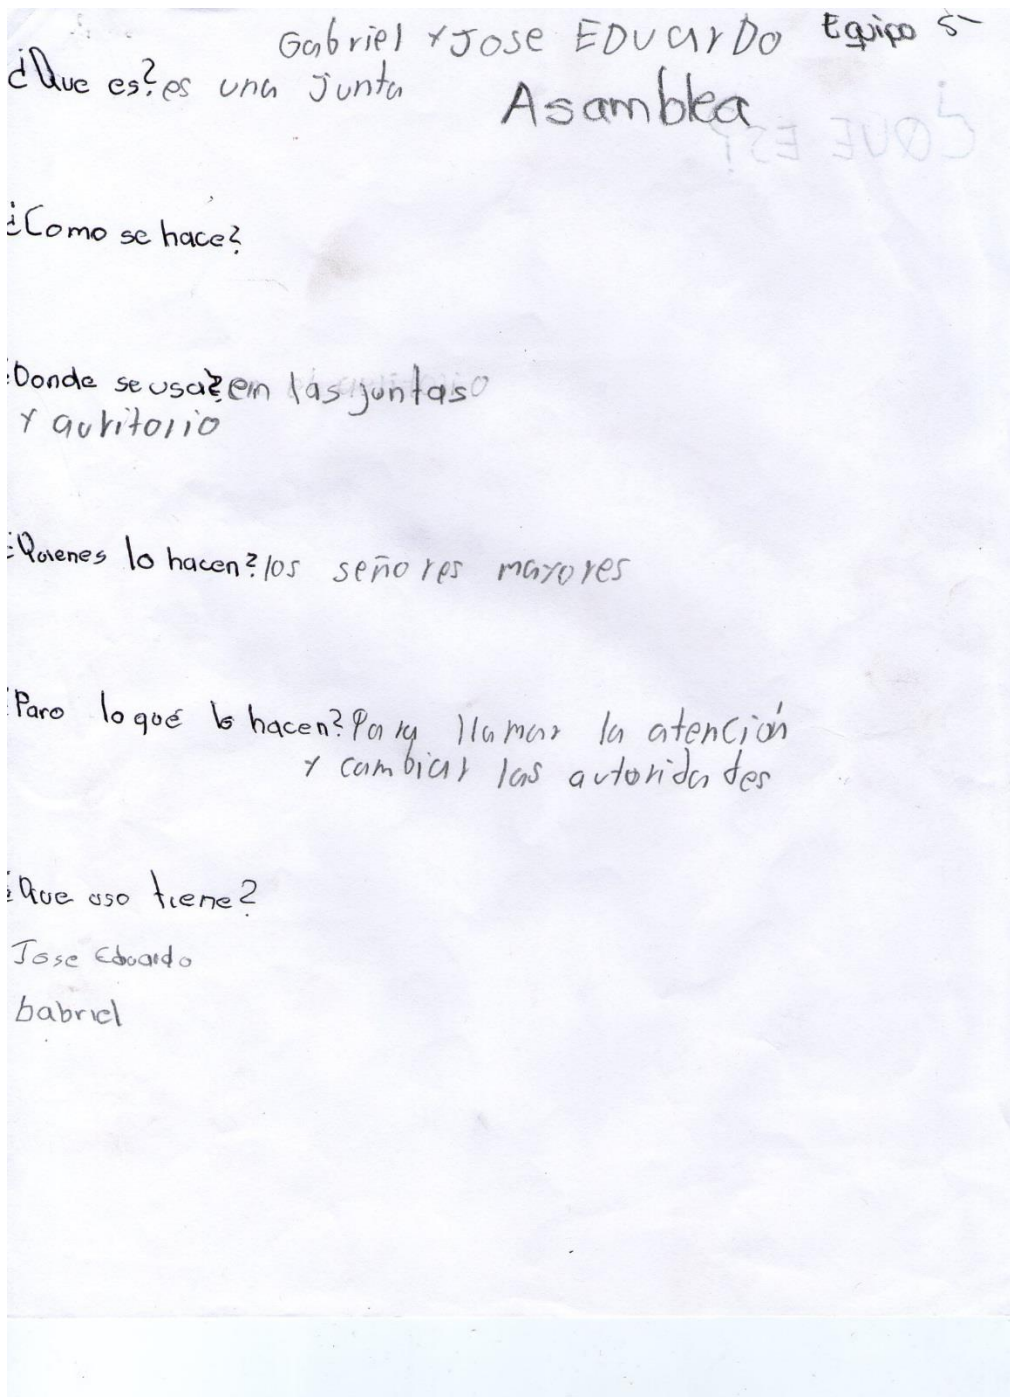 Gabriel y JOSE EDUARDO Equipo 5
¿Que es? es una Junta
Asamblea
¿QUE ES?
¿Como se hace?
¿Donde se usa? em las juntas
y auritorio
¿Quienes lo hacen? los señores mayores
¿Paro lo qué lo hacen? Para llamar la atención
y cambiar las autoridades
¿Que uso tiene?
Jose Eduardo
Gabriel